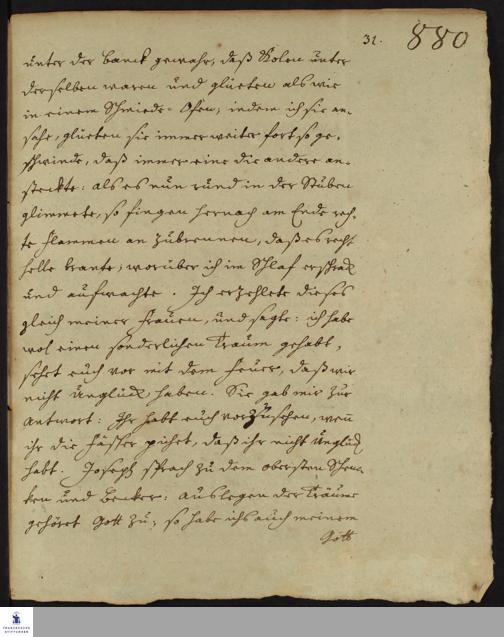 31. 880
unter der banck gewahr, daß Kolen unter
derselben waren und glüeten als wie
in einem Schmiede-Ofen; indem ich sie an-
sahe, glüeten sie immer weiter fort so ge-
schwinde, daß immer eine die andere an-
steckte: als es nun rund in der Stuben
glimmete, so fingen hernach am Ende rech-
te flammen an zubrennen, daß es recht
helle brante; worüber ich im Schlaf erschrack
und aufwachte. Ich erzehlete dieses
gleich meiner frauen, und sagte: ich habe
wol einen sonderlichen Traum gehabt,
sehet euch vor mit dem feuer, daß wir
nicht Unglück haben. Sie gab mir zur
antwort: Ihr habt euch vorzusehen, wenn
ihr die fässer pichet, daß ihr nicht Unglück
habt. Joseph sprach zu dem obersten Schen-
cken und becker: auslegen der Träume
gehöret Gott zu; so habe ichs auch meinem
Gott
FRANCKESCHE
STIFTUNGEN